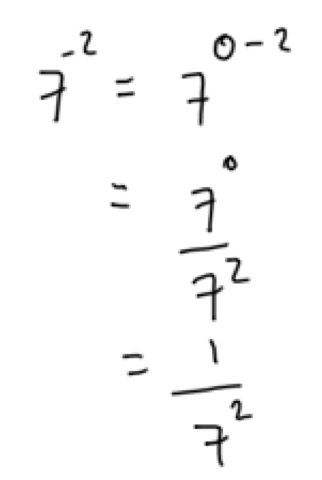 7^{-2} = 7^{0-2}
= \frac{7^0}{7^2}
= \frac{1}{7^2}